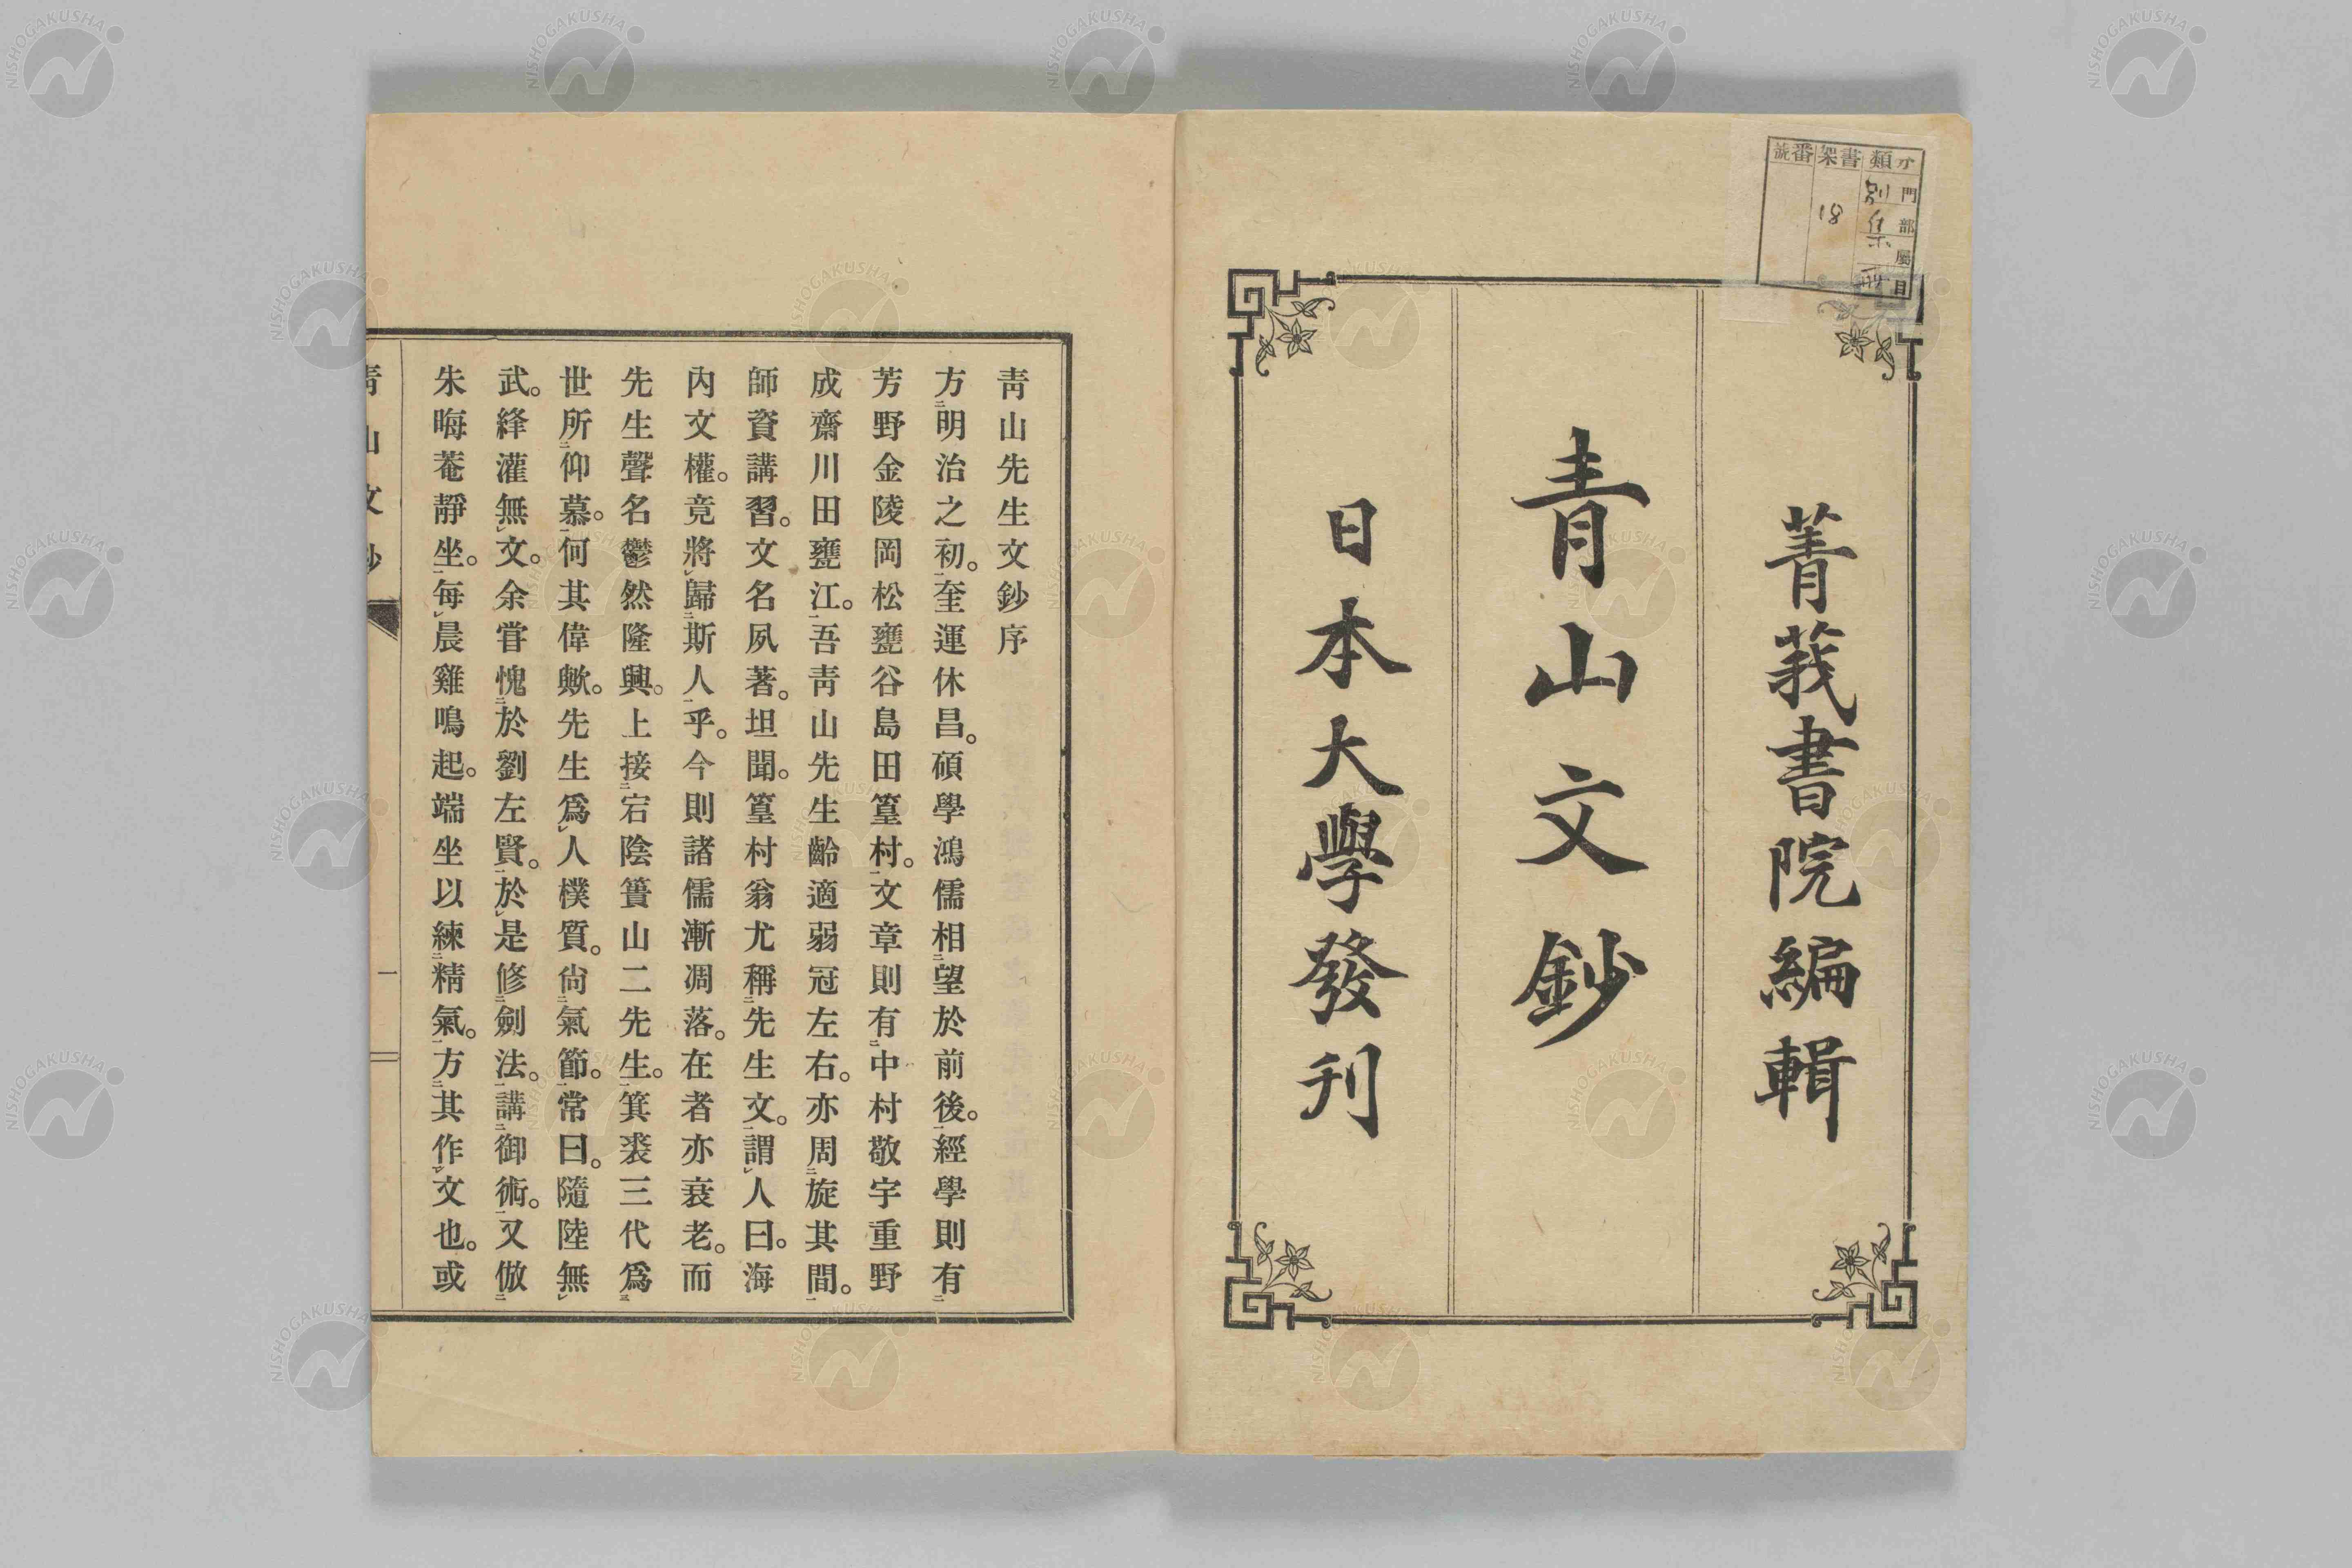 菁莪書院編輯
青山文鈔
日本大學發刊
類
書架
番號
門
部
屬
目
集
18
靑山先生文鈔序
方明治之初。奎運休昌。碩學鴻儒相望於前後。經學則有
芳野金陵岡松甕谷島田篁村。文章則有中村敬宇重野
成齋川田甕江。吾靑山先生齡適弱冠左右。亦周旋其間。
師資講習。文名夙著。坦聞。篁村翁尤稱先生文。謂人曰。海
內文權。竟將歸斯人乎。今則諸儒漸凋落。在者亦衰老。而
先生聲名鬱然隆興。上接宕陰簣山二先生。箕裘三代爲
世所仰慕。何其偉歟。先生爲人樸質。尙氣節。常曰。隨陸無
武。絳灌無文。余甞愧於劉左賢。於是修劍法。講御術。又倣
朱晦菴靜坐。每晨雞鳴起。端坐以練精氣。方其作文也。或
靑山文鈔
一
NISHOGAKUSHA